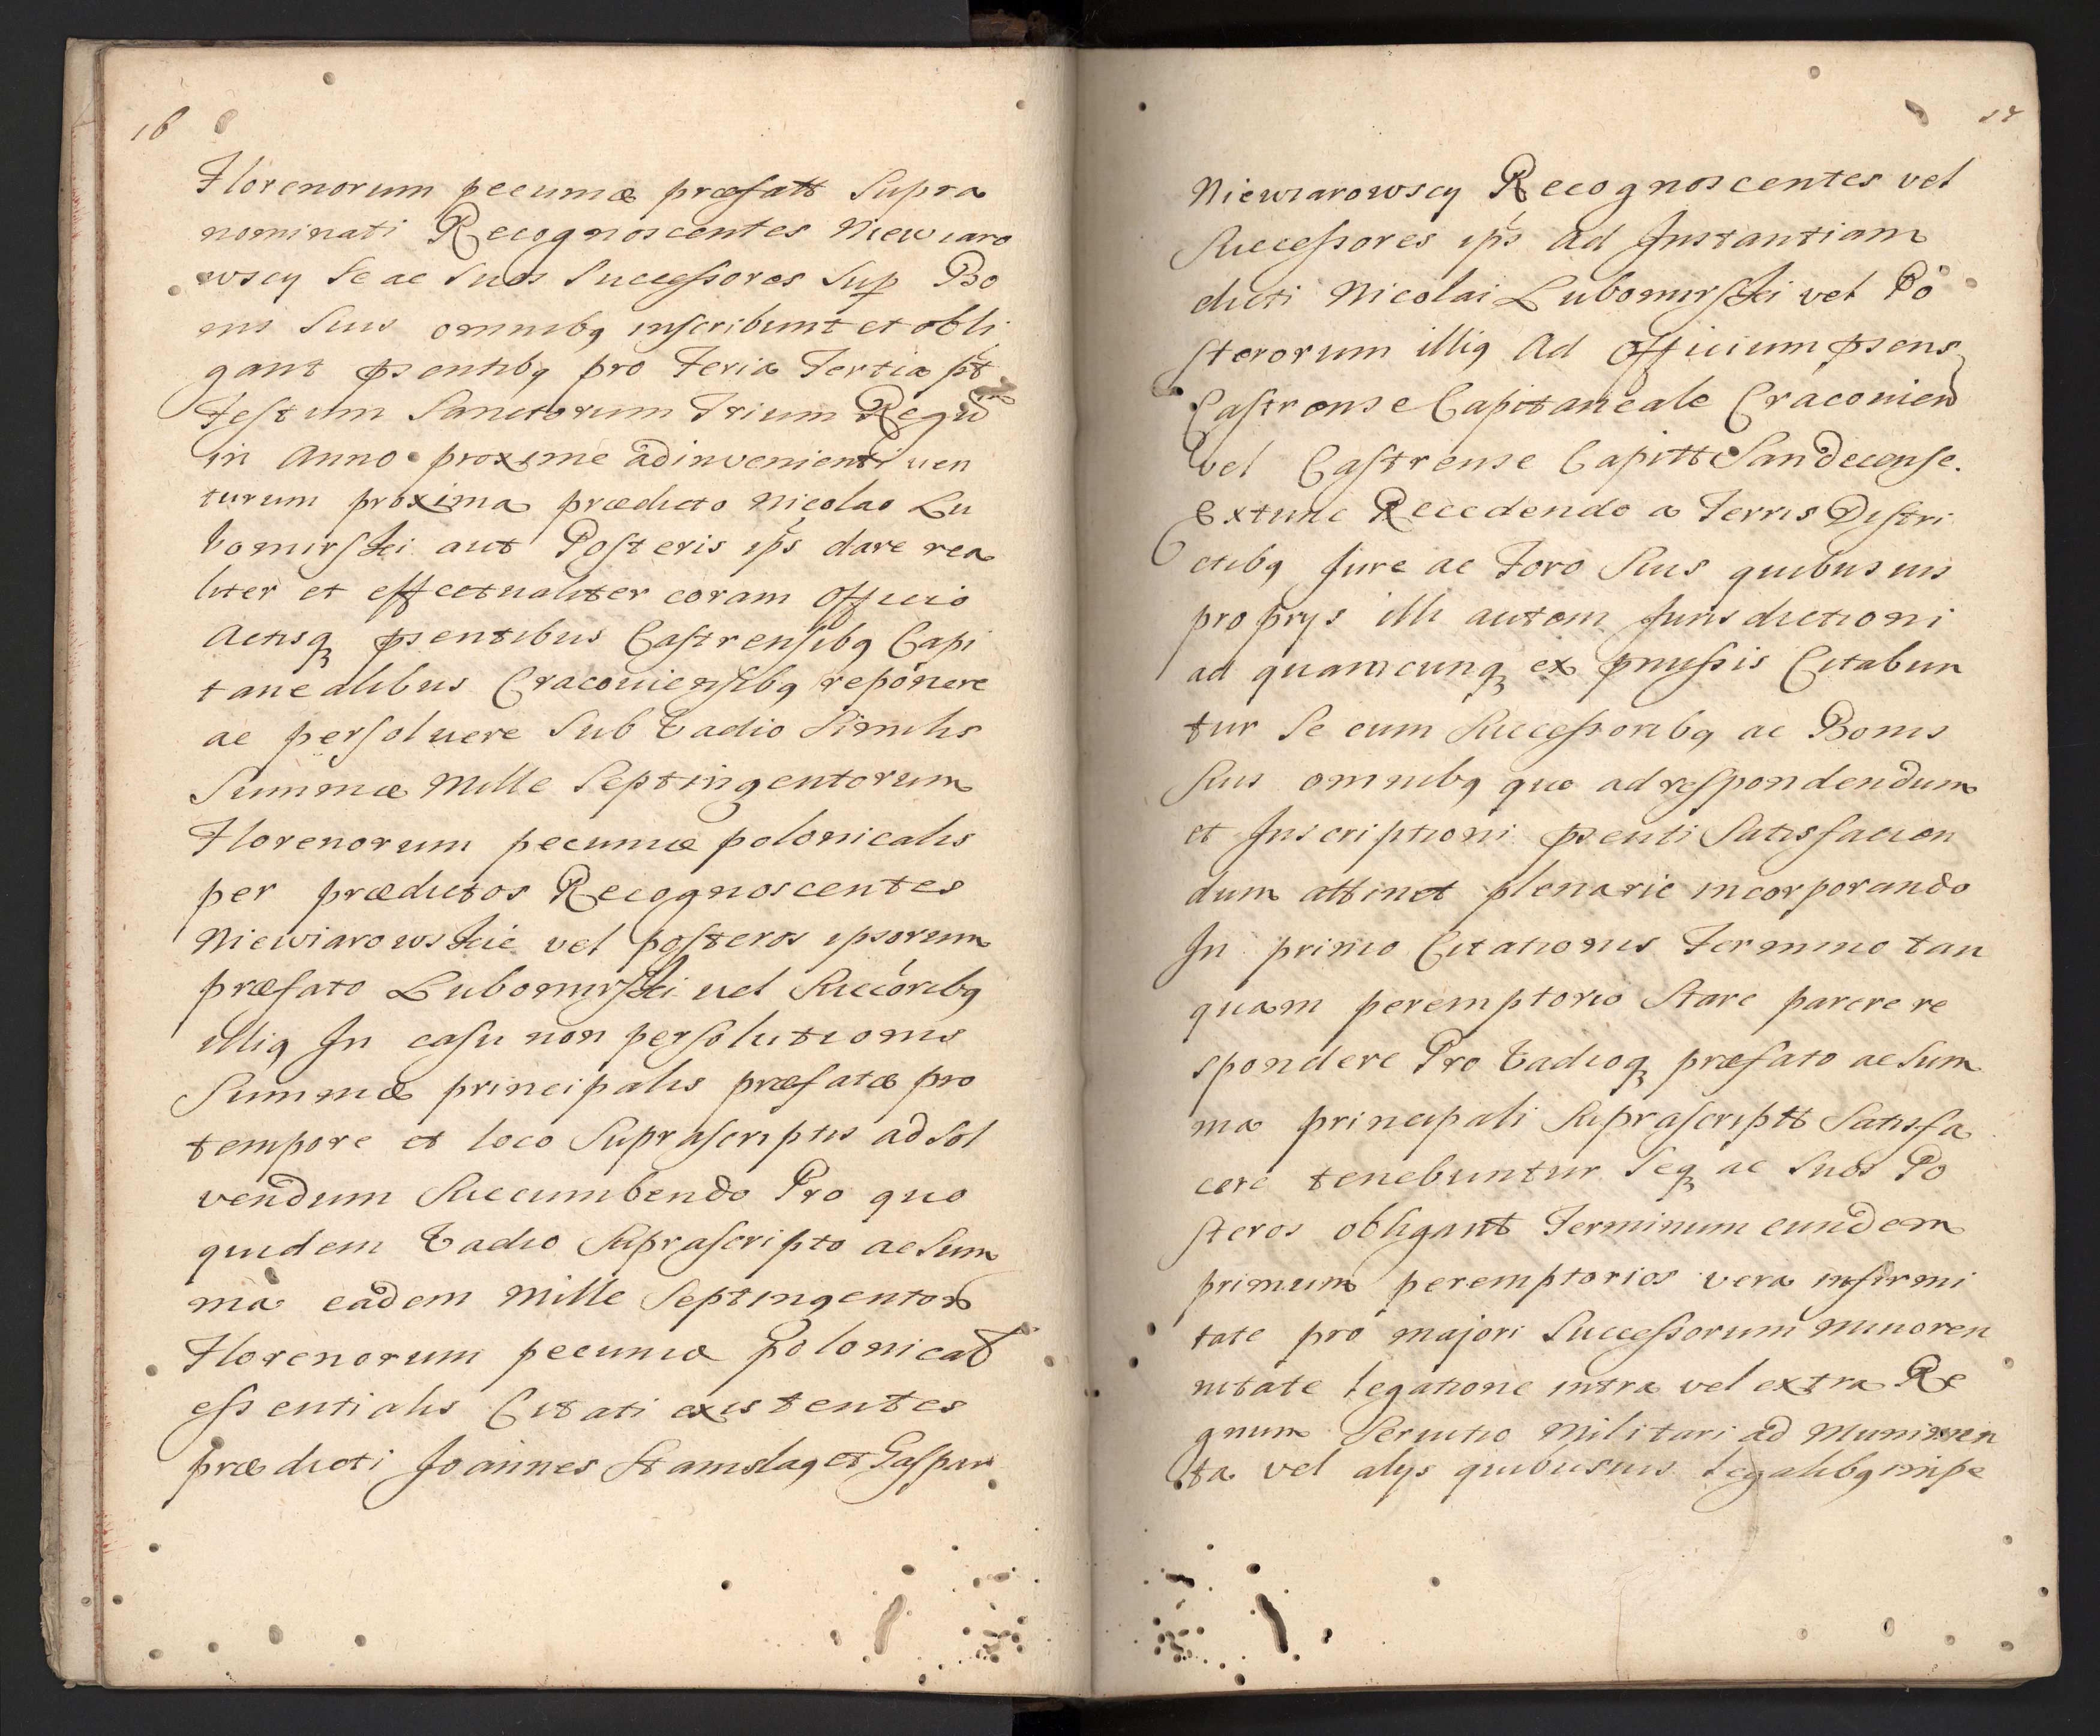 16
Florenorum pecuniæ præfatt Supra
nominati Recognoscentes Niewiaro
wscy Se ac Suos Successores Sup Bo
nis Suis omnibq inscribunt et obli
gant psentibq pro Feria Tertia pt
Festum Sanctorum Trium Regu
in Anno proxime adinvenienti uen
turum proxima prædicto Nicolao Lu
bomirski aut Posteris ips dare rea
liter et effectualiter coram Officio
Actisq psentibus Castrensibq Capi
tanealibus Cracouiensibq reponere
ac persoluere Sub Vadio Similis
Summæ Mille Septingentorum
Florenorum pecuniæ polonicalis
per prædictos Recognoscentes
Niewiarowskie vel posteros ipsorum
præfato Lubomirski uel Succoribq
illiq In casu non persolutionis
Summæ principalis præfatæ pro
tempore et loco Suprascriptis ad Sol
vendum Succumbendo Pro quo
quidem Vadio Suprascripto ac Sum
ma eadem Mille Septingentor
Florenorum pecuniæ polonical
essentialis Citati existentes
prædicti Joannes Stanislaq et Gaspar
17
Niewiarowscy Recognoscentes vel
Successores ips ad Instantiam
dicti Nicolai Lubomirski vel Po
sterorum illiq Ad Officium psens
Castrense Capitaneale Cracouien
vel Castrense Capitt Sandecense.
Extunc Recedendo a Terris Distri
ctibq Jure ac Foro Suis quibusuis
proprys illi autem Jurisdictioni
ad quamcunq ex pmissis Citabun
tur Se cum Successoribq ac Bonis
Suis omnibq quo ad respondendum
et Inscriptioni psenti Satisfacien
dum attinet plenarie incorporando
In primo Citationis Termino tan
quam peremptorio Stare parere re
spondere Pro Vadioq præfato ac Sum
ma principali Suprascriptt Satisfa
cere tenebuntur Seq ac Suos Po
steros obligant Terminum eundem
primum peremptorios vera infirmi
tate pro majori Successorum minoren
nitate legatione intra vel extra Re
gnum Seruitio Militari ad Munimen
ta vel alys quibusuis legalibq impe